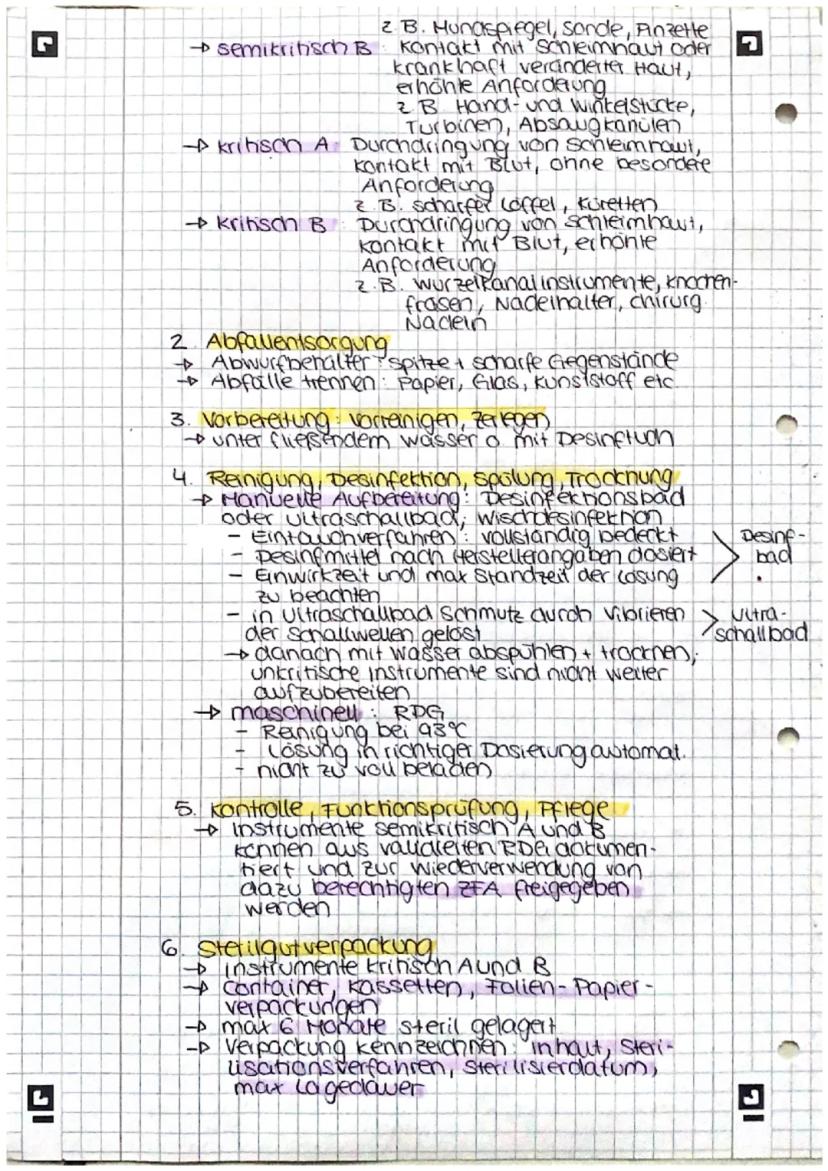 z.B. Mundspiegel, Sonde, Pinzette
→ semikritisch B: Kontakt mit Schleimhaut oder
krankhaft veränderter Haut,
erhöhte Anforderung
z.B. Hand- und Winkelstücke,
Turbinen, Absaugkanülen
→ kritisch A: Durchdringung von Schleimhaut,
Kontakt mit Blut, ohne besondere
Anforderung
z.B. scharfer Löffel, Küretten
→ kritisch B: Durchdringung von Schleimhaut,
Kontakt mit Blut, erhöhte
Anforderung
z.B. Wurzelkanalinstrumente, Knochen-
fräsen, Nadelhalter, chirurg.
Nadeln
2. Abfallentsorgung
→ Abwurfbehälter: spitze + scharfe Gegenstände
→ Abfälle trennen: Papier, Glas, Kunststoff etc.
3. Vorbereitung: vorreinigen, zerlegen
→ unter fließendem Wasser o. mit Desinftuch
4. Reinigung, Desinfektion, Spülung, Trocknung
→ Manuelle Aufbereitung: Desinfektionsbad
oder Ultraschallbad, Wischdesinfektion
- Eintauchverfahren: vollständig bedeckt
- Desinfmittel nach Herstellerangaben dosiert
- Einwirkzeit und max Standzeit der Lösung
zu beachten
> Desinf-
bad
- in Ultraschallbad Schmutz durch Vibrieren
der Schallwellen gelöst
> Ultra-
schallbad
→ danach mit Wasser abspühlen + trocknen,
unkritische Instrumente sind nicht weiter
aufzubereiten
→ maschinell: RDG
- Reinigung bei 93°C
- Lösung in richtiger Dosierung automat.
- nicht zu voll beladen
5. Kontrolle, Funktionsprüfung, Pflege
→ Instrumente semikritisch A und B
können aus validierten RDG dokumen-
tiert und zur Wiederverwendung von
dazu berechtigten ZFA freigegeben
werden
6. Sterilgutverpackung
→ Instrumente kritisch A und B
→ Container, Kassetten, Folien-Papier-
verpackungen
→ max 6 Monate steril gelagert
→ Verpackung kennzeichnen: Inhalt, Steri-
lisationsverfahren, Sterilisierdatum,
max Lagedauer